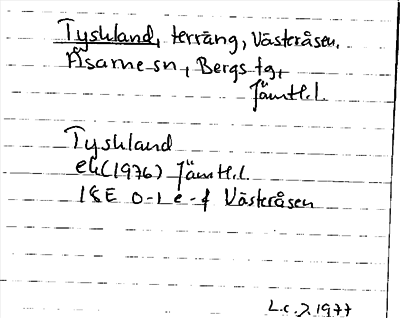 Tyskland, terräng, Västeråsen,
Åsarne sn, Bergs tg,
Jämtl.l.
Tyskland
ek (1976) Jämtl.l.
18E 0-1 e-f Västeråsen
L.c.J. 1977